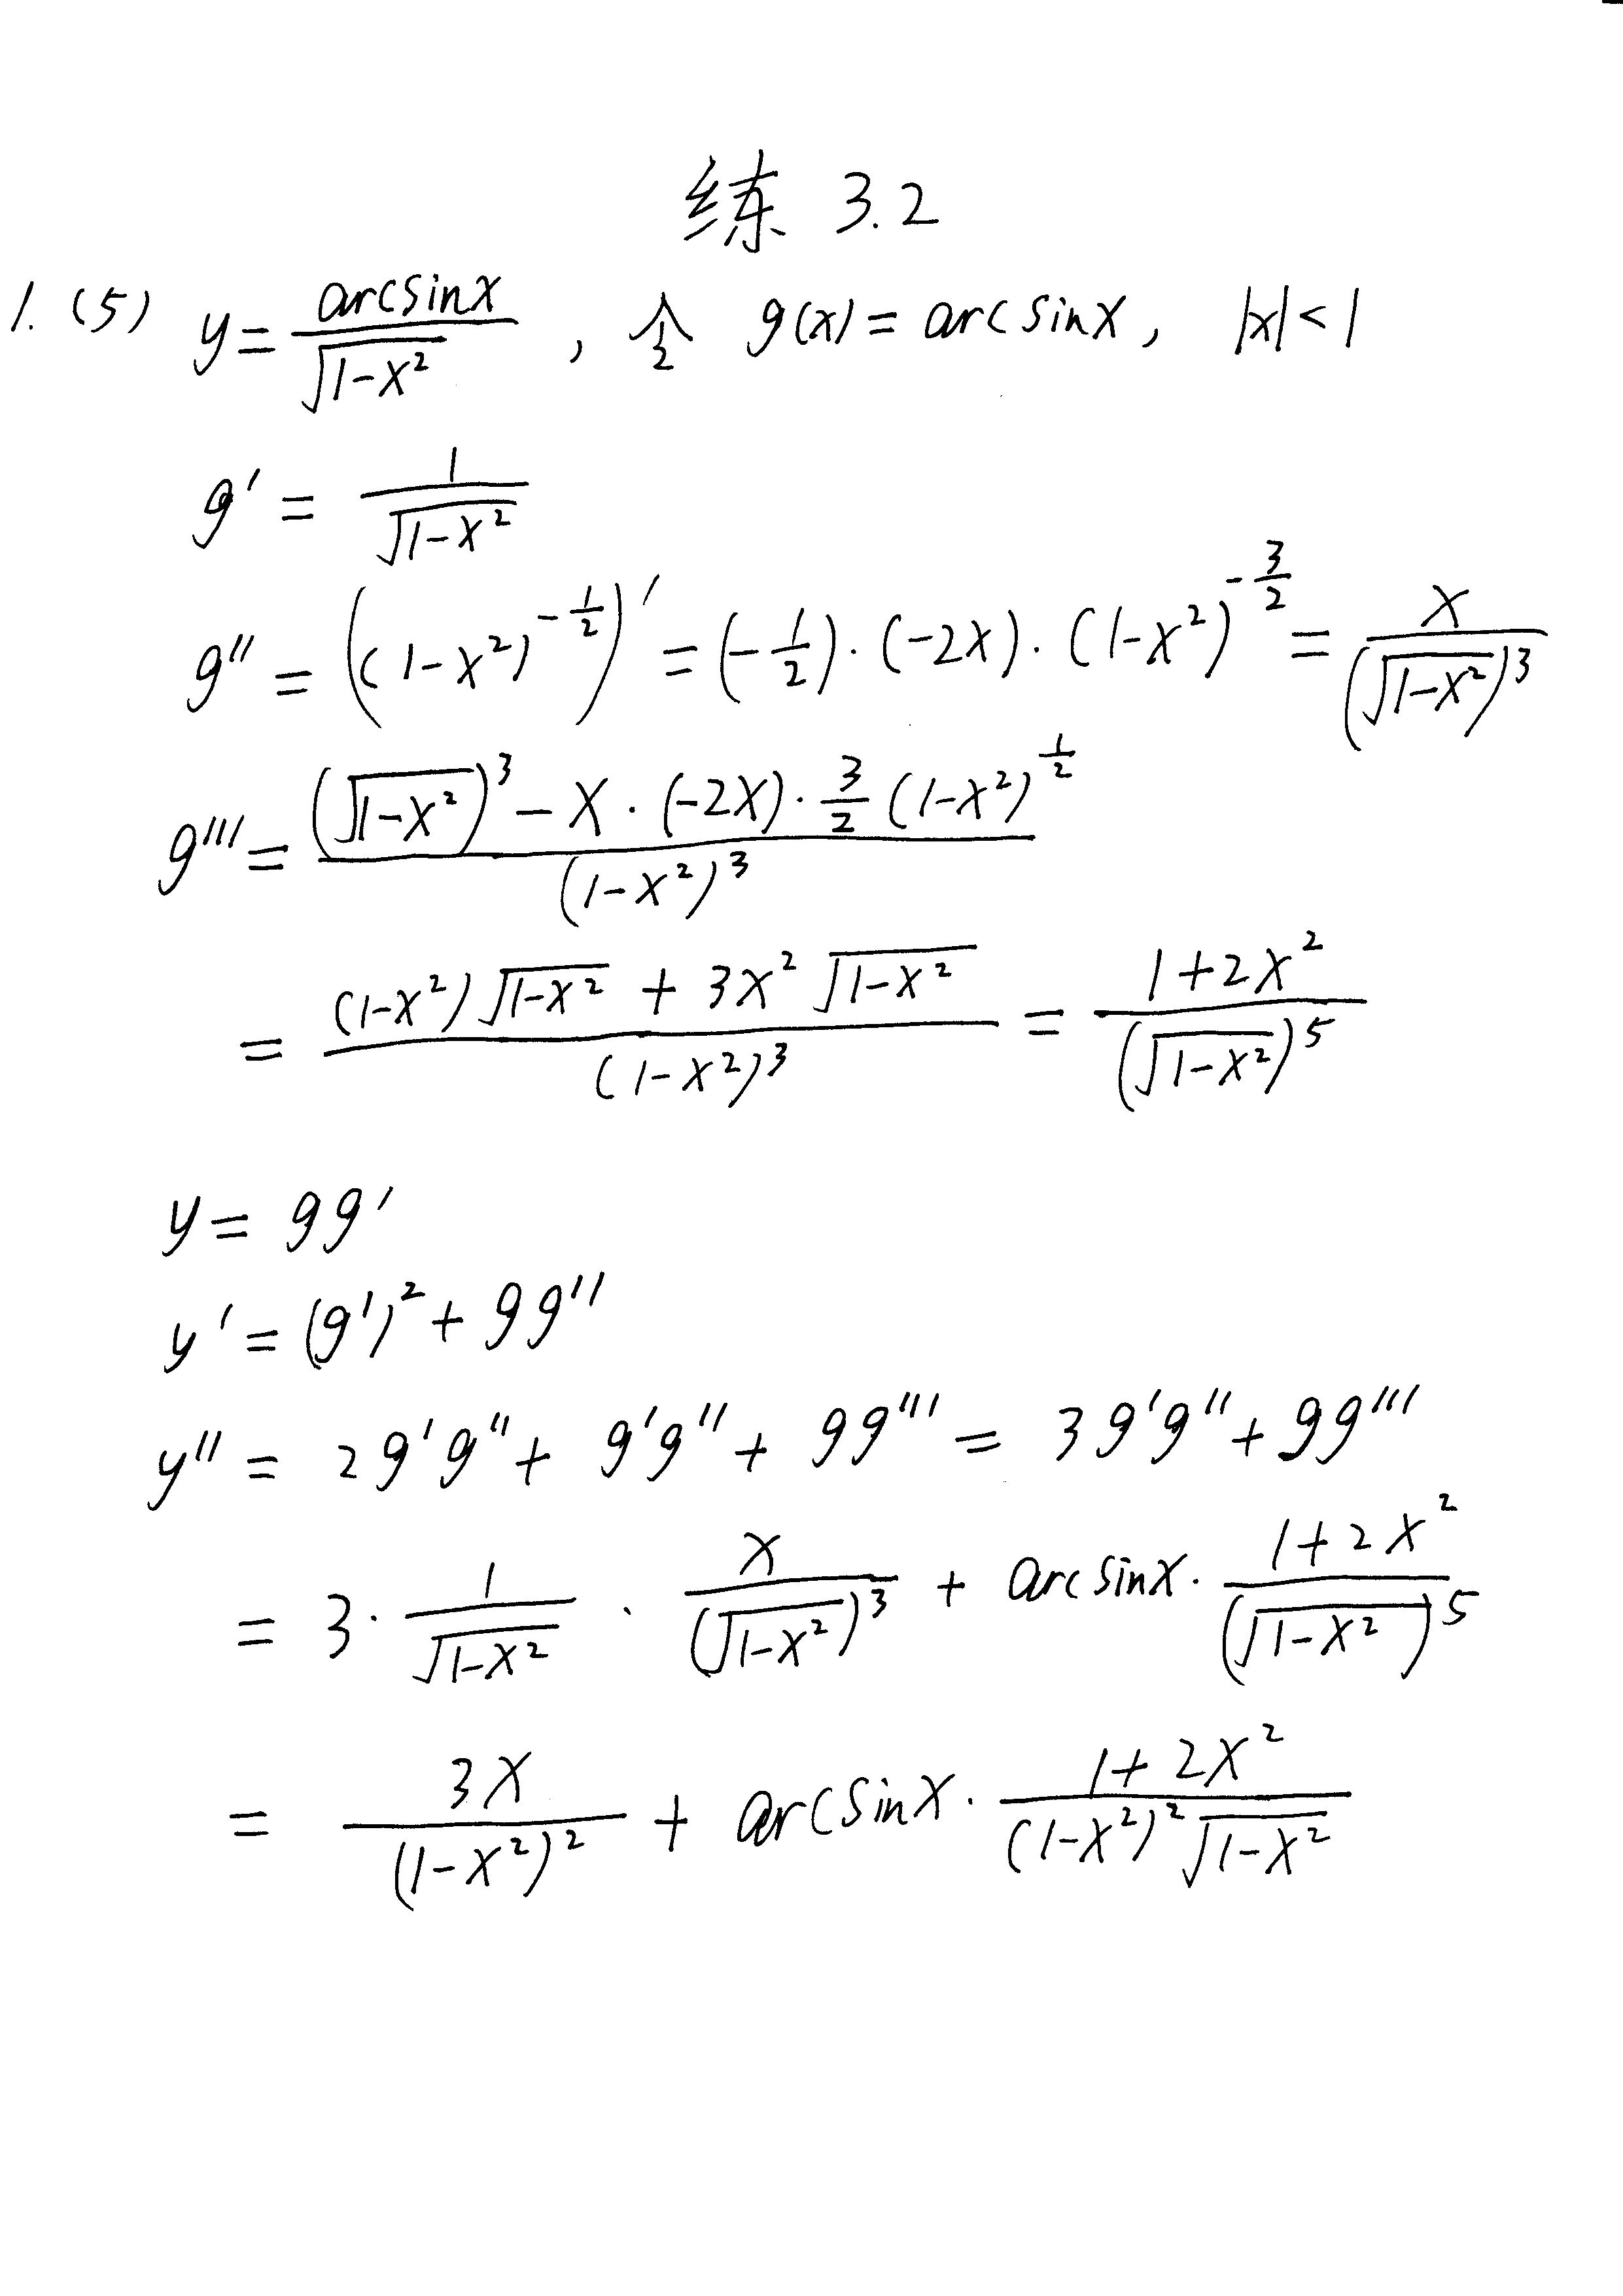 练 3.2
1. (5) y = \frac{arcsinx}{\sqrt{1-x^2}} , 令 g(x) = arcsinx, |x| < 1
g' = \frac{1}{\sqrt{1-x^2}}
g'' = ((1-x^2)^{-\frac{1}{2}})' = (-\frac{1}{2})·(-2x)·(1-x^2)^{-\frac{3}{2}} = \frac{x}{(\sqrt{1-x^2})^3}
g''' = \frac{(\sqrt{1-x^2})^3 - x·(-2x)·\frac{3}{2}(1-x^2)^{\frac{1}{2}}}{(1-x^2)^3}
= \frac{(1-x^2)\sqrt{1-x^2} + 3x^2\sqrt{1-x^2}}{(1-x^2)^3} = \frac{1+2x^2}{(\sqrt{1-x^2})^5}
y = gg'
y' = (g')^2 + gg''
y'' = 2g'g'' + g'g'' + gg''' = 3g'g'' + gg'''
= 3·\frac{1}{\sqrt{1-x^2}}·\frac{x}{(\sqrt{1-x^2})^3} + arcsinx·\frac{1+2x^2}{(\sqrt{1-x^2})^5}
= \frac{3x}{(1-x^2)^2} + arcsinx·\frac{1+2x^2}{(1-x^2)^2\sqrt{1-x^2}}